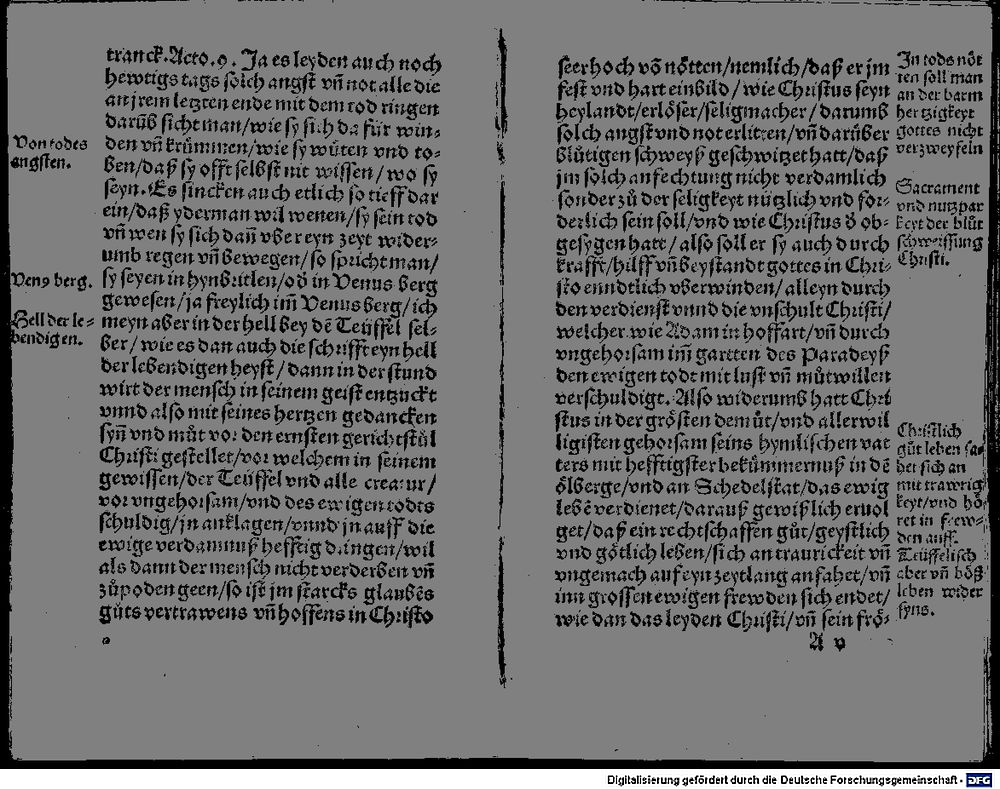 tranck. Acto. 9. Ja es leyden auch noch
hewtigs tags solch angst vñ not alle die
an jrem letzten ende mit dem tod ringen
darüb sicht man/wie sy sich da für win-
den vñ krümmen/wie sy wüten vnd to-
ben/daß sy offt selbst nit wissen/wo sy
seyn. Es sincken auch etlich so tieff dar
ein/daß yderman wil wenen/sy sein tod
vñ wen sy sich dañ vber eyn zeyt wider-
umb regen vñ bewegen/so spricht man/
sy seyen in hynbritlen/od in Venus berg
gewesen/ja freylich im̃ Venus berg/ich
meyn aber in der hell bey dẽ Teüffel sel-
ber/wie es dan auch die schrifft eyn hell
der lebendigen heyst/dann in der stund
wirt der mensch in seinem geist entzuckt
vnnd also mit seines hertzen gedancken
syñ vnd můt vor den ernsten gerichtstůl
Christi gestellet/vor welchem in seinem
gewissen/der Teüffel vnd alle creatur/
vor vngehorsam/vnd des ewigen todts
schuldig/jn anklagen/vnnd jn auff die
ewige verdamnuß hefftig dringen/wil
als dann der mensch nicht verderben vñ
zůpoden geen/so ist jm starcks glaubẽs
gůts vertrawens vñ hoffens in Christo
Von todes
angsten.
Venꝰ berg.
Hell der le-
bendigen.
seer hoch võ nötten/nemlich/daß er jm
fest vnd hart einbild/wie Christus seyn
heylandt/erlöser/seligmacher/darumb
solch angst vnd not erlitten/vñ darüber
blůtigen schweyß geschwitzet hatt/daß
jm solch anfechtung nicht verdamlich
sonder zů der seligkeyt nützlich vnd for-
derlich sein soll/vnd wie Christus d ob-
gesygen hatt/also soll er sy auch durch
krafft/hilff vñ beystandt gottes in Chri-
sto enndtlich vberwinden/alleyn durch
den verdienst vnnd die vnschult Christi/
welcher wie Adam in hoffart/vñ durch
vngehorsam im̃ gartten des Paradeyß
den ewigen todt mit lust vñ můtwillen
verschuldigt. Also widerumb hatt Chri
stus in der grösten demůt/vnd aller wil
ligisten gehorsam seins hymlischen vat
ters mit hefftigster bekümmernuß in dẽ
ölberge/vnd an Schedelstat/das ewig
lebẽ verdienet/darauß gewißlich ervol
get/daß ein rechtschaffen gůt/geystlich
vnd götlich leben/sich an traurickeit vñ
vngemach auf eyn zeytlang anfahet/vñ
inn grossen ewigen frewden sich endet/
wie dan das leyden Christi/vñ sein frö-
A v
In tods nöt
ten soll man
an der barm
hertzigkeyt
gottes nicht
verzweyfeln
Sacrament
vnd nutzpar
keyt der blůt
schweissung
Christi.
Christlich
gůt leben fa-
het sich an
mit trawrig
keyt/vnd hö
ret in frew-
den auff.
Teüffelisch
aber vñ böß
leben wider
syns.
Digitalisierung gefördert durch die Deutsche Forschungsgemeinschaft - DFG